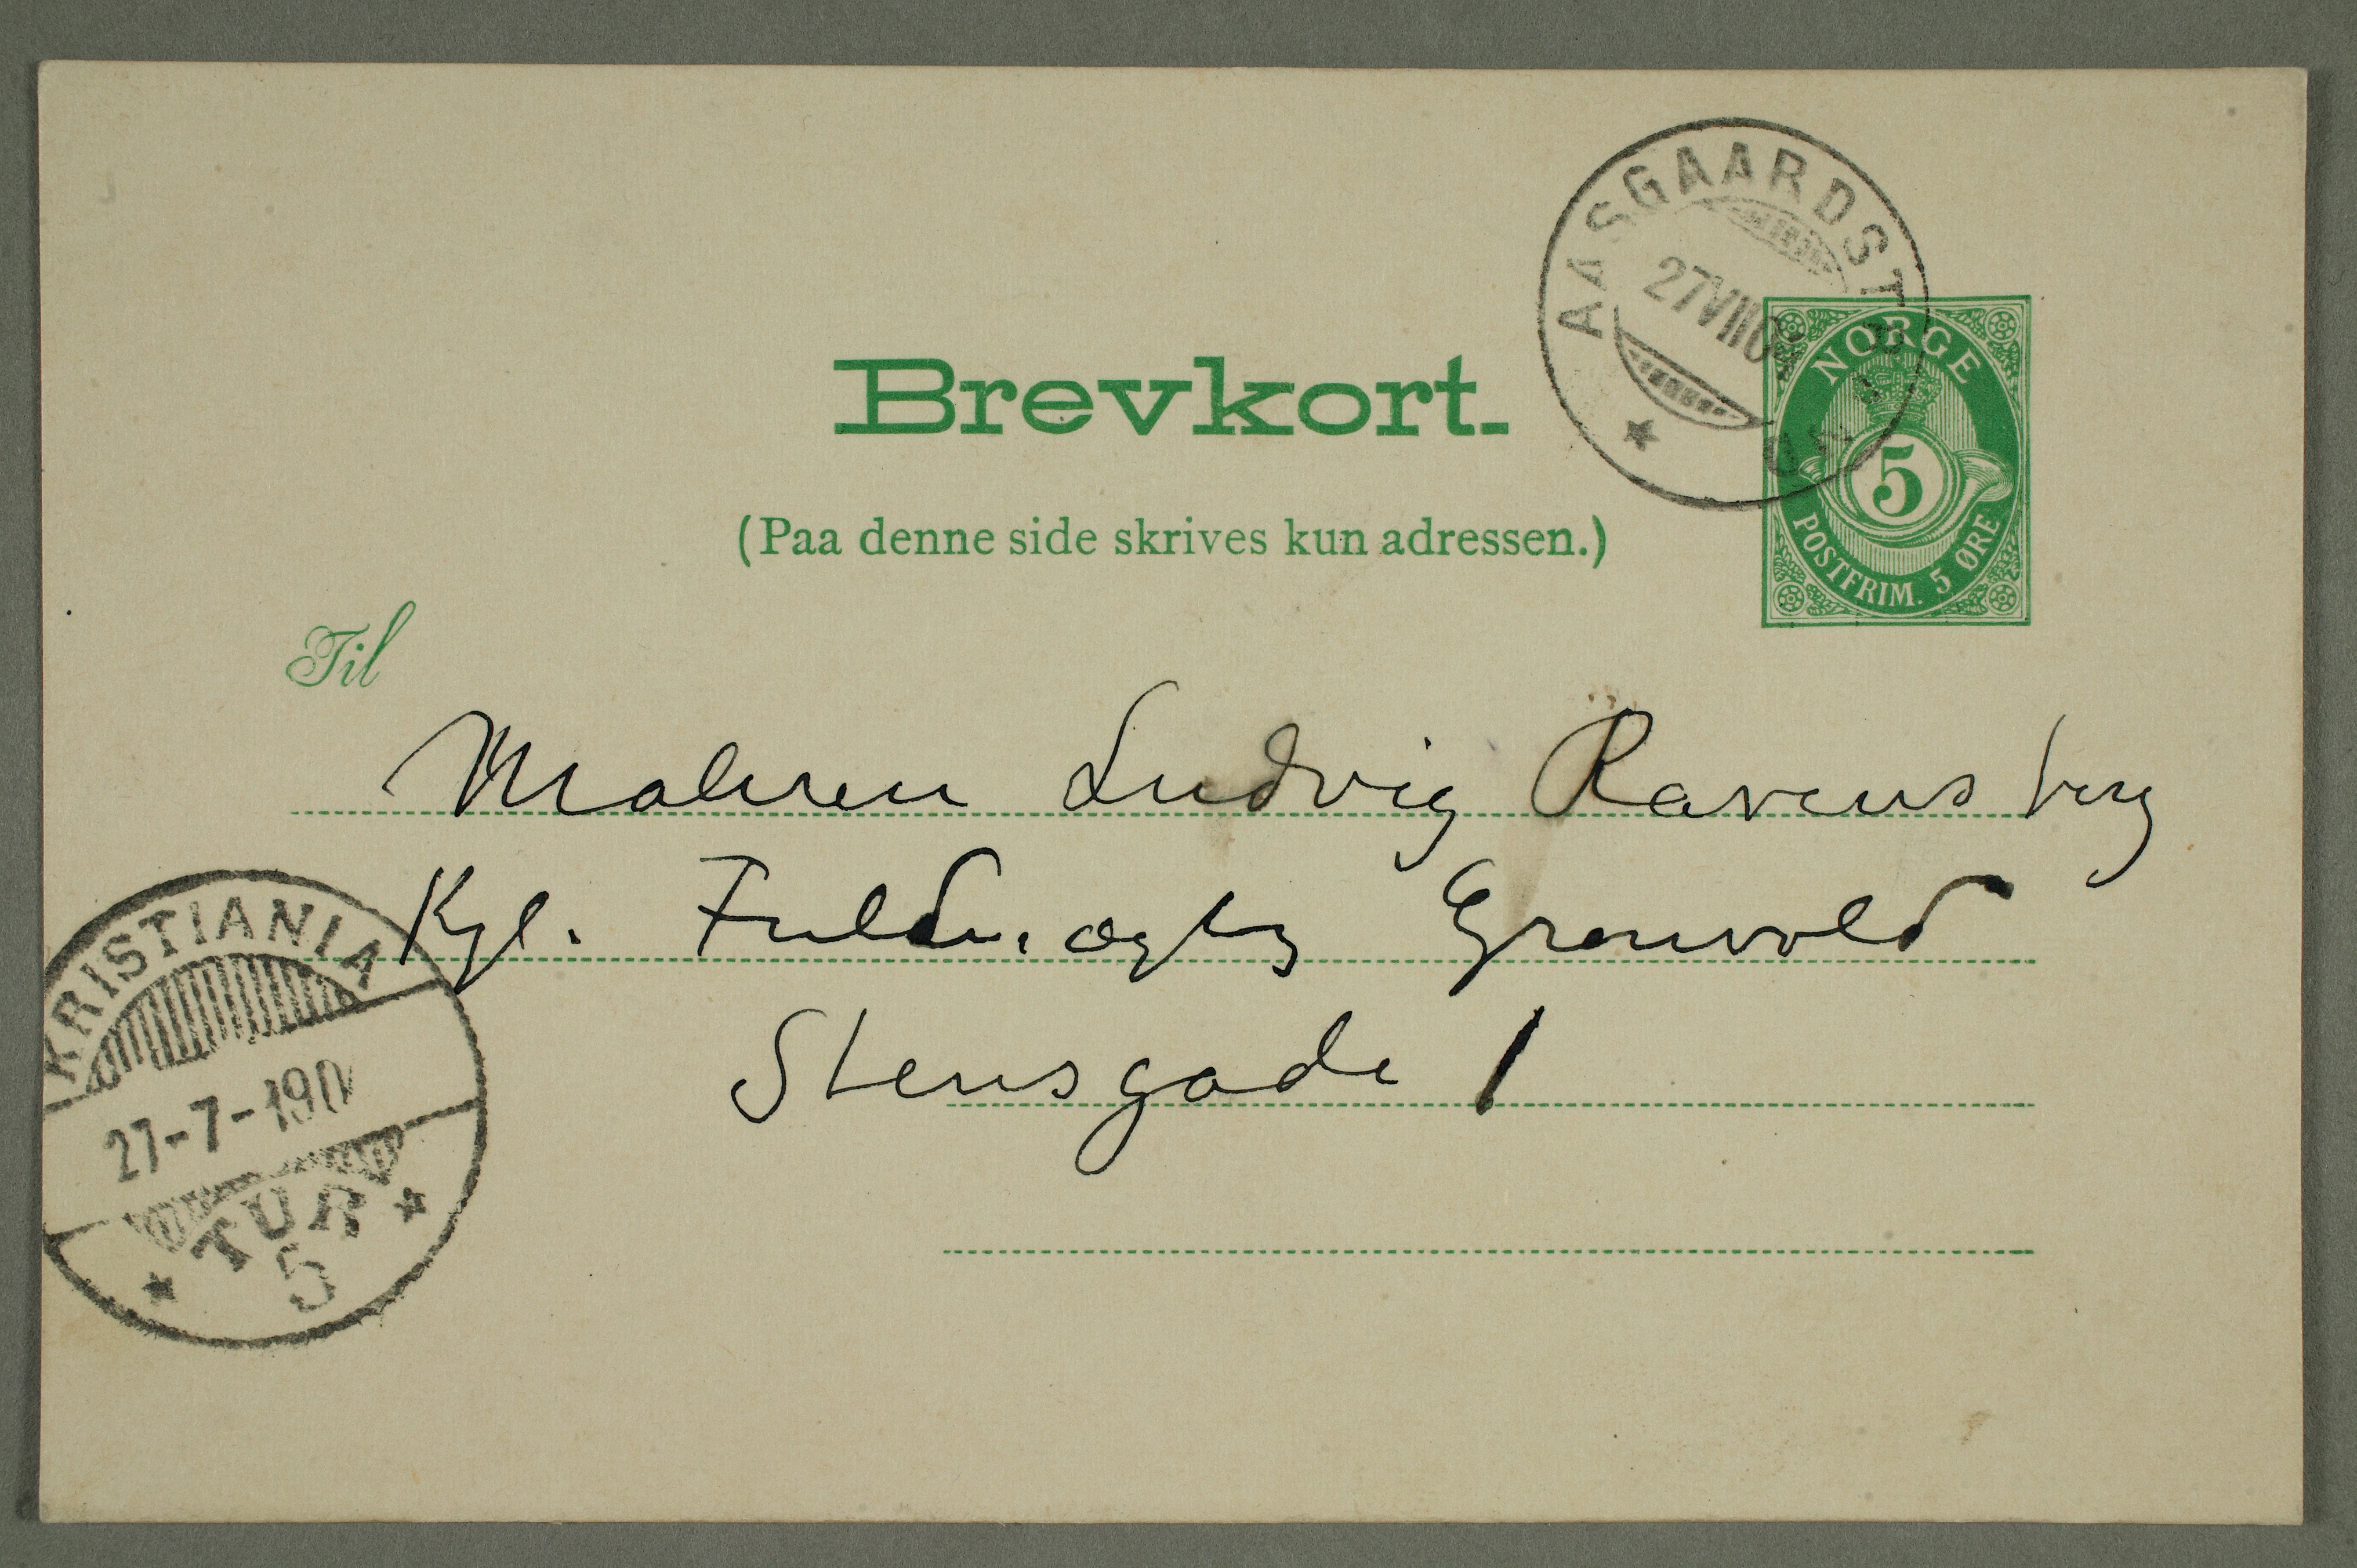 AASGAARDST
27 VII 0
Brevkort.
NORGE
5
POSTFRIM. 5 ØRE
(Paa denne side skrives kun adressen.)
Til
Maleren Ludvig Ravensberg
Kgl. Fuldmægtig Grønvold
Stensgade 1
KRISTIANIA
27-7-190
TUR
5